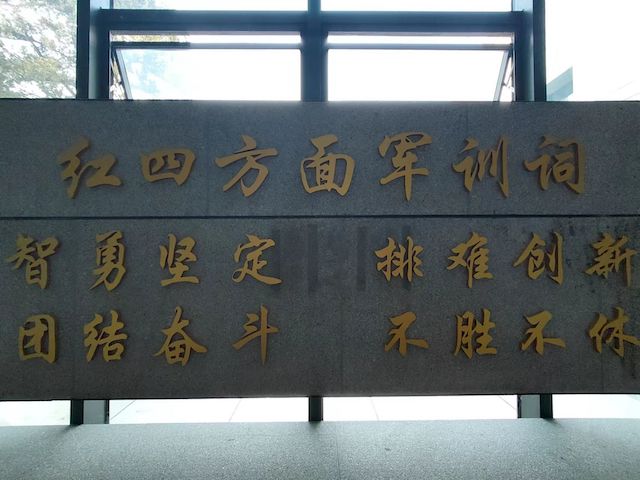 红四方面军训词
智勇坚定 排难创新
团结奋斗 不胜不休